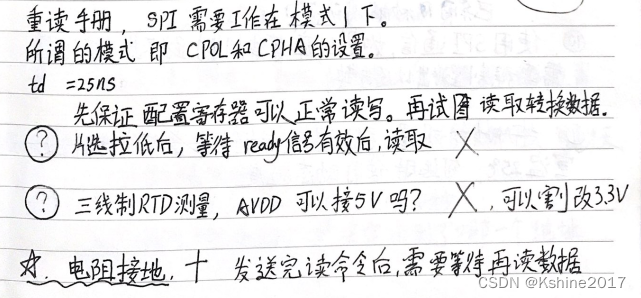 重读手册，SPI 需要工作在 模式1 下。
所谓的模式 即 CPOL和CPHA的设置。
td =25ns
先保证 配置寄存器可以正常读写。再试图 读取转换数据.
? 片选拉低后，等待 ready信号有效后，读取 ×
? 三线制RTD测量，AVDD 可以接5V吗? ×，可以割改3.3V
☆. 电阻接地. 十 发送完读命令后,需要等待再读数据
CSDN @Kshine2017